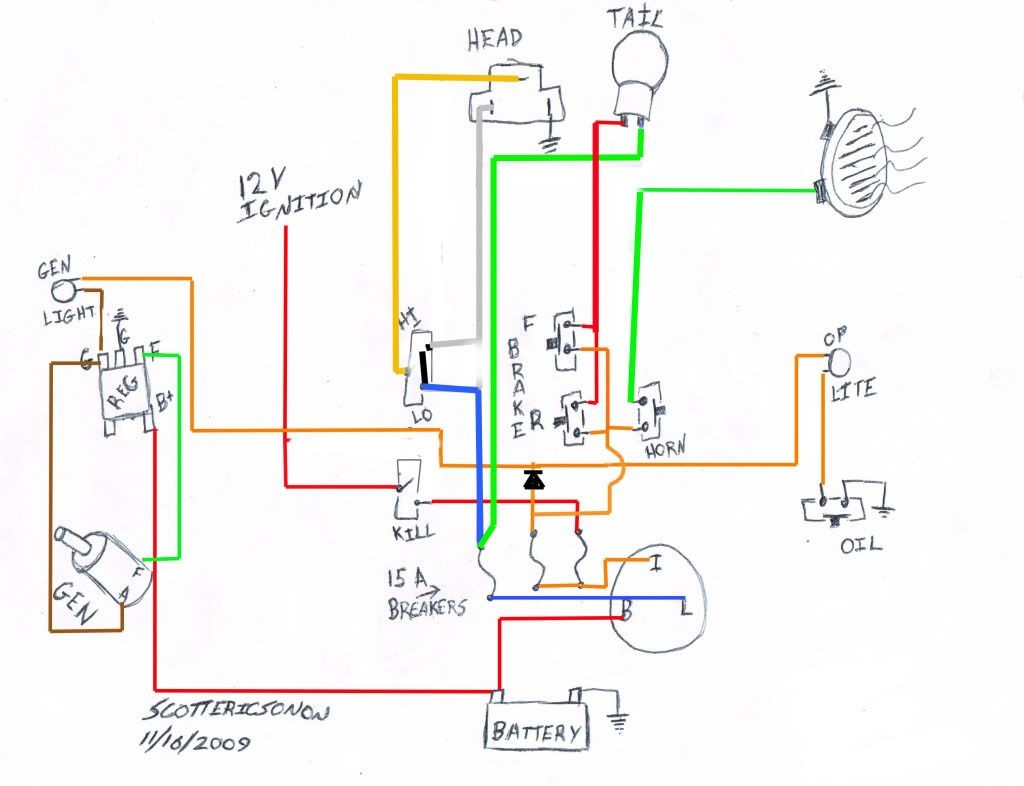 TAIL
HEAD
12V
IGNITION
GEN
LIGHT
G
G
F
REG
B+
HI
LO
F
BRAKE
R
HORN
OP
LITE
KILL
OIL
15 A
BREAKERS
I
B
L
F
A
GEN
SCOTTERICSONON
11/16/2009
BATTERY